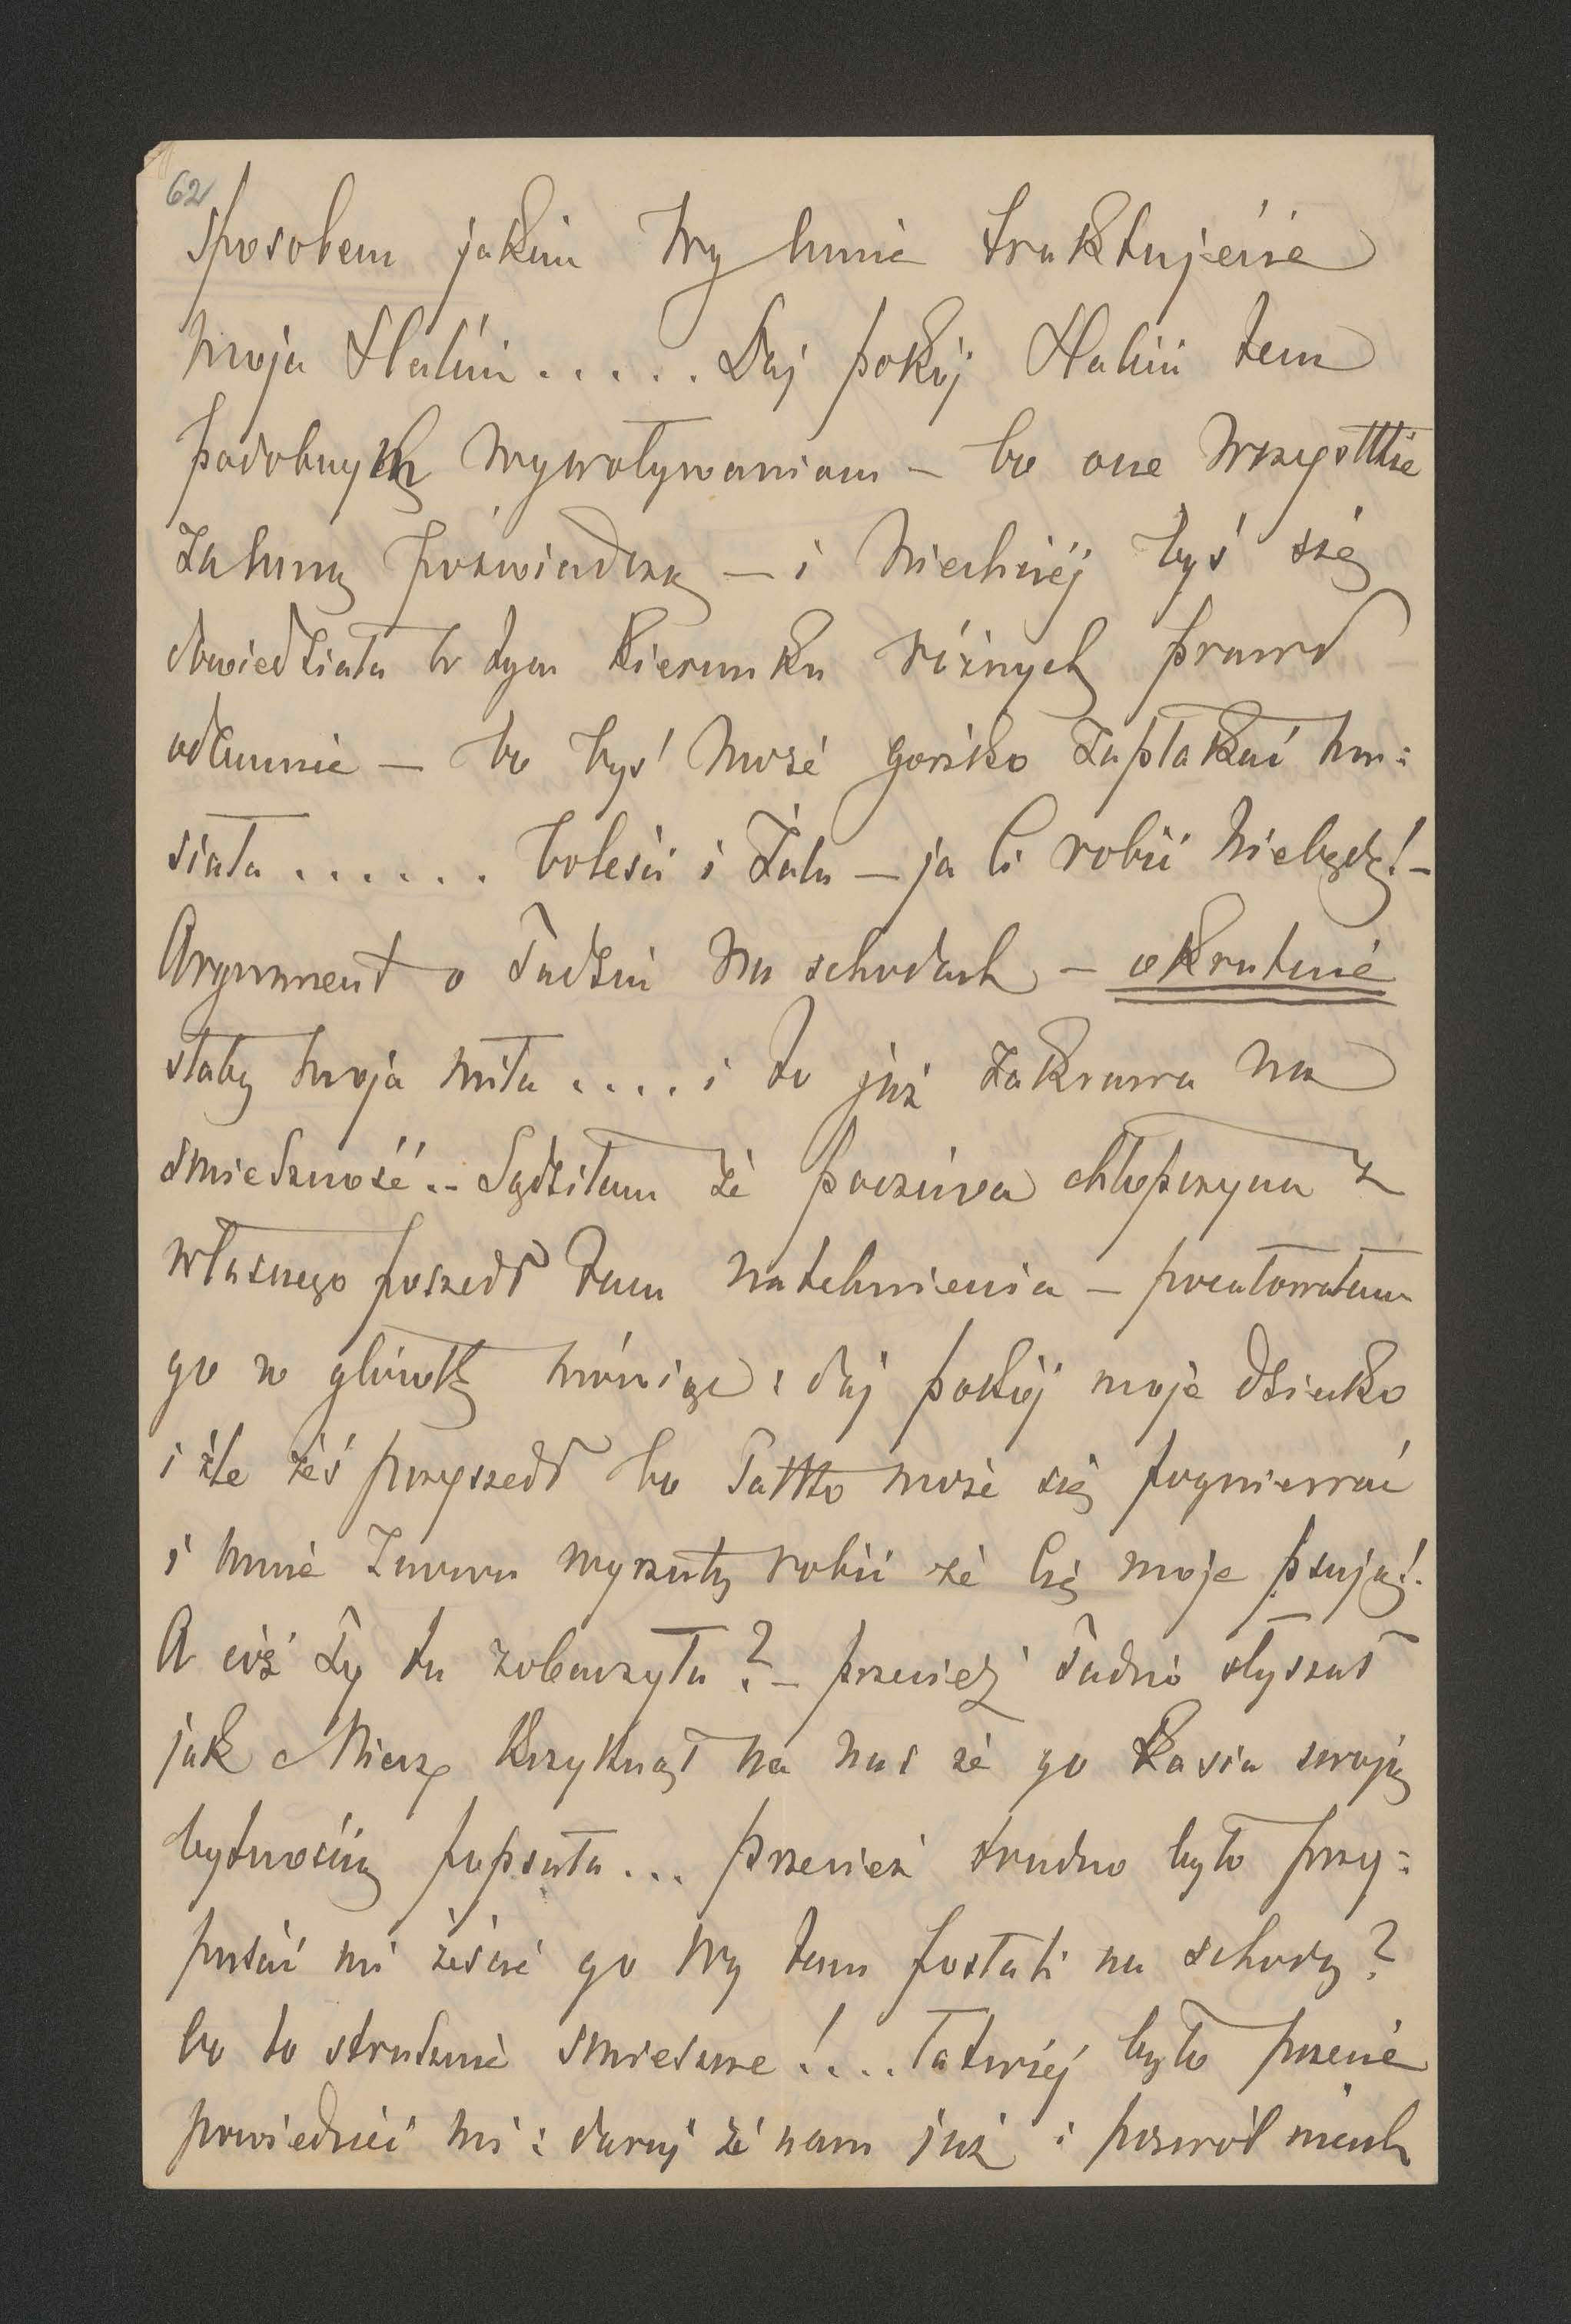 62
sposobem jakim Wy mnie traktujecie
moja Haluu..... Daj pokój Haluu tem
podobnych wywoływaniom – bo one wszystkie
za mną poświadczą – i niechciej byś się
dowiedziała w tym kierunku różnych prawd
odemnie – bo byś może gorzko zapłakać mu=
siała ...... boleści i żalu – ja Ci robić niebędę! –
Argument o Tadziu na schodach – okrutnie
słaby moja miła .... i to już zakrawa na
śmieszność.– Sądziłam że poczciwa chłopczyna z
własnego poszedł tam natchnienia – pocałowałam
go w główkę mówiąc: daj pokój moje dziecko
i źle żeś przyszedł bo Tatko może się pogniewać
i mnie znowu wyrzuty robić że Cię moje psują!.
A cóż Ty tu zobaczyła? – przecież Tadzio słyszał
jak Miecz. krzyknął na nas że go Kasia swoją
bytnością popsuła... przecież trudno było przy=
puścić mi żeście go Wy tam posłali na schody?
bo to strasznie śmieszne!... Łatwiéj było przecie
powiedzieć mi: daruj że nam już i pozwól niech